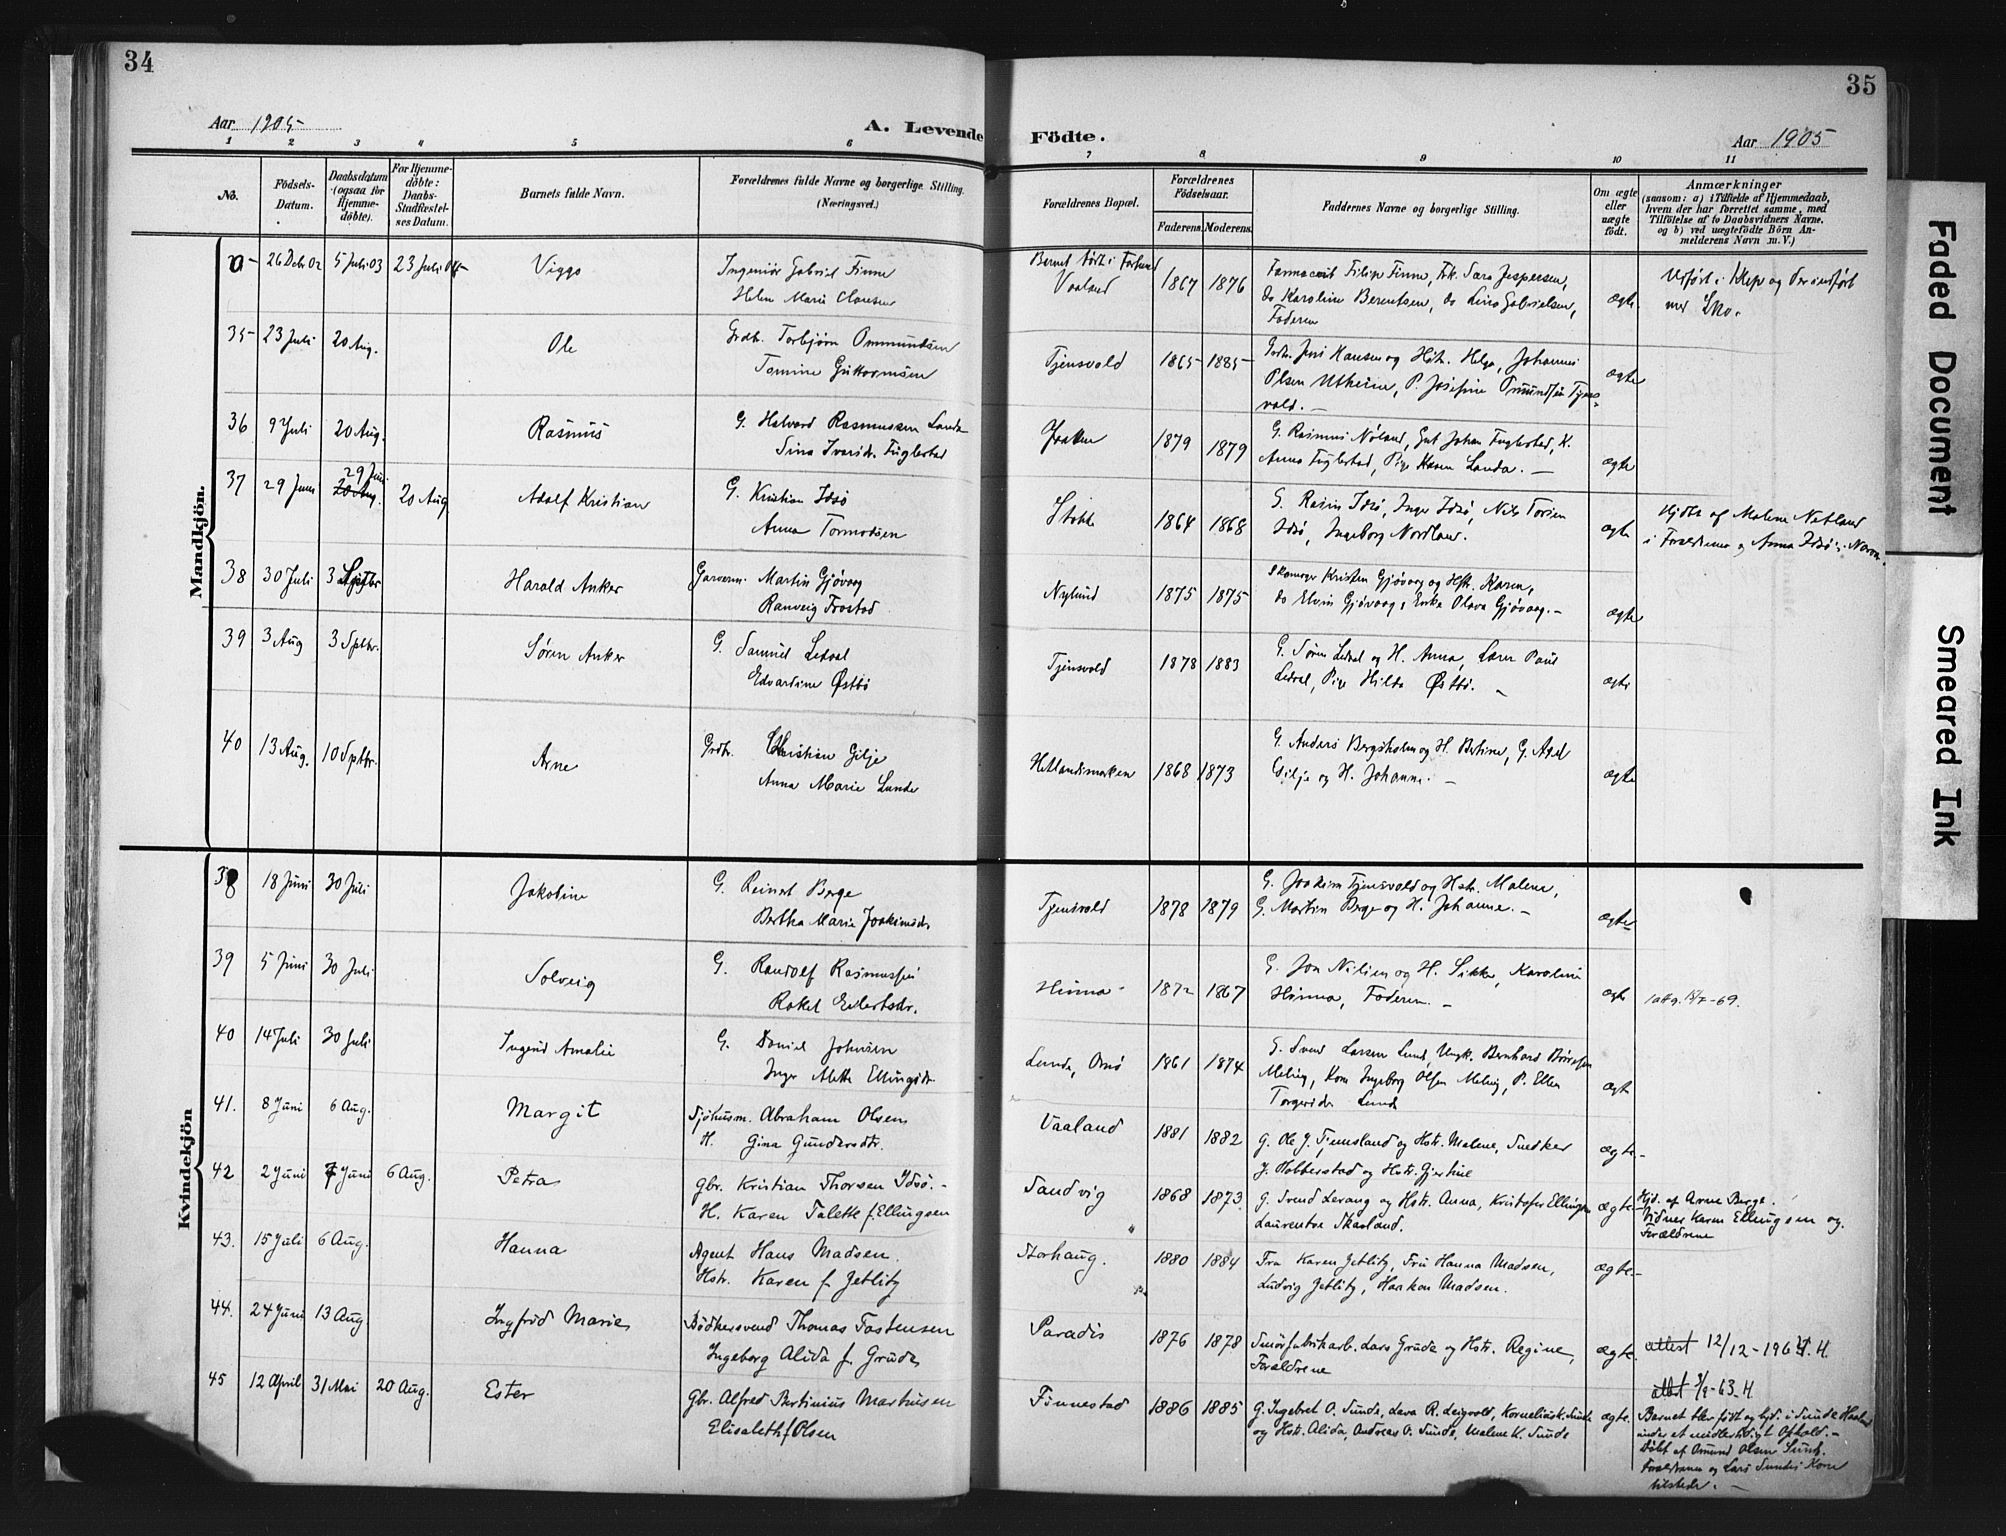 34
35
Aar 1905
A. Levende Födte.
Aar 1905
1 2 3 4 5 6 7 8 9 10 11
No.
Födsels-Datum.
Daabsdatum (ogsaa for Hjemmedöbte).
For Hjemmedöbte: Daabs-Stadfæstelses Datum.
Barnets fulde Navn.
Forældrenes fulde Navne og borgerlige Stilling. (Næringsvei.)
Forældrenes Bopæl.
Forældrenes Födselsaar.
Faderens. Moderens.
Faddernes Navne og borgerlige Stilling.
Om ægte eller uægte födt.
Anmærkninger
(saasom: a) i Tilfælde af Hjemmedaab, hvem der har forrettet samme, med Tilföielse af to Daabsvidners Navne. og b) ved uægtefödte Börn Anmelderens Navn m. V.)
Mandkjön.
26 Debr 02 5 Juli 03 23 Juli 05 Viggo Ingeniør Gabriel Finne Vaaland 1867 1876 Farmaceut Filip Finne, Frk. Sara Jespersen,
Helen Marie Clausen do Karoline Berentsen, do Lina Gabrielsen, ægte.
Faderen
35 23 Juli 20 Aug. Ole Grdb. Torbjørn Ommundsen Tjensvold 1865 1885 Jens Hansen og Hstr. Helga, Johannes
Tomine Guttormsen Olsen Utheim, P. Josefine Omundsen Tjensvold. — ægte
36 9 Juli 20 Aug. Rasmus G. Halvard Rasmussen Landa 1879 1879 G. Rasmus Nøland, Gut Johan Fuglestad, K.
Sina Ivarsdr. Fuglestad Anna Fuglestad, Pige Karen Landa. — ægte
37 29 Juni 29 Juni 20 Aug. 20 Aug Adolf Kristian G. Kristian Idsø Stokke 1864 1868 G. Rasm Idsø, Inger Idsø, Nils Torsen
Anna Tormodsen Idsø, Ingeborg Nordland. ægte Hjdbt af Malene Natland
38 30 Juli 3 Septbr Harald Anker Garverm. Martin Gjøvaag Nylund 1875 1875 Skomager Kristen Gjøvaag og Hstr. Karen,
Ranveig Frostad do Elvin Gjøvaag, Enke Olava Gjøvaag. — ægte
39 3 Aug 3 Sptbr. Søren Anker G. Samuel Ledaal Tjensvold 1878 1883 G. Søren Ledaal og H. Anna, Lærer Paul
Edvardine Østbø Ledaal, Pige Hilda Østbø. — ægte
40 13 Aug. 10 Sptbr. Arne Grdb. Christian Gilje Hetlandsmarken 1868 1873 G. Anders Bergsholm og H. Bertine, G. Axel
Anna Marie Lunde Gilje og H. Johanne. — ægte
Kvindekjön
38 18 Juni 30 Juli Jakobine G. Reinert Berge Tjensvold 1878 1879 G. Joakim Tjensvold og Hstr. Malene,
Bertha Marie Joakimsdr G. Martin Berge og H. Johanne. — ægte
39 5 Juni 30 Juli Solveig G. Randolf Rasmussen Hinna 1872 1867 G. Jon Nilsen og H. Sikke, Karoline
Rakel Eilertsdr. Hinna, Faderen. — ægte
40 14 Juli 30 Juli Ingrid Amalie G. Daniel Johnsen Lunde, Omø 1861 1874 G. Svend Larsen Lunde, Ungk. Bernhard Børresen
Inger Alette Ellingsdr. Meling, Kone Ingeborg Olsen Meling, P. Ellen ægte
Torgersdr Lunde
41. 8 Juni 6 Aug. Margit Sjøhusm. Abraham Olsen Vaaland 1881 1882 G. Ole J. Tjemsland og Hstr. Malene, Snedker
H. Gina Gundersdtr. J. Hobberstad og Hstr. Gjertine ægte.
42 2 Juni 7 Juni 6 Aug. Petra Gbr. Kristian Thorsen Idsø. Sandvig 1868 1873. G. Svend Lerang og Hstr. Anna, Kristofer Ellingsen
H. Karen Talette f. Ellingsen Laurentse Skarland. ægte Hjd. af Arne Berge.
Vidner Karen Ellingsen og Forældrene
43. 15 Juli 6 Aug. Hanna Agent Hans Madsen. Storhaug. 1880 1884 Fru Karen Jetlitz, Fru Hanna Madsen,
Hstr. Karen f. Jetlitz Ludvig Jetlitz, Haakon Madsen. ægte.
44. 24 Juni 13 Aug. Ingfrid Marie Bødkersvend Thomas Tastensen Paradis 1876 1878 Smørfabrikarb. Lars Grude og Hstr. Regine,
Ingeborg Alida f. Grude Forældrene ægte. attest 12/12-1964 H.
45 12 April 31 Mai 20 Aug. Ester Gbr. Alfred Bertinius Martinsen Finnestad 1886 1885 G. Ingebret O. Sunde, Lava R. Leigvold, Kornelius K. Sunde
Elisabeth f. Olsen og Hstr. Alida, Andreas O. Sunde, Malene K. Sunde ægte. attest 3/9-63 H
Barnet blev født og hjd. i Sunde Haaland
under et midlertidigt Ophold. —
Døbt af Omund Olsen Sunde.
Forældrene og Lars Sundes Kone
tilstede. —
Faded Document
Smeared Ink